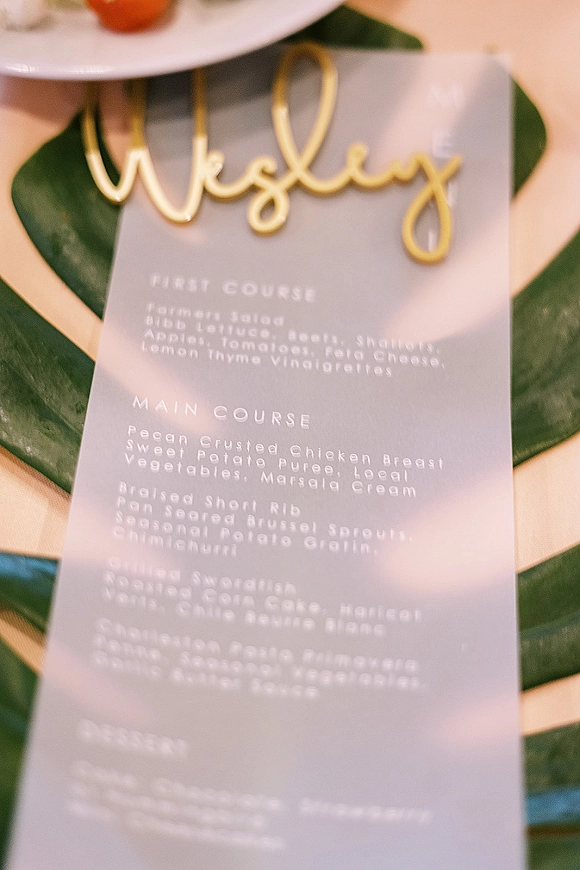 Wesley
MENU
FIRST COURSE
Farmers Salad
Bibb Lettuce, Beets, Shallots,
Apples, Tomatoes, Feta Cheese,
Lemon Thyme Vinaigrettes
MAIN COURSE
Pecan Crusted Chicken Breast
Sweet Potato Puree, Local
Vegetables, Marsala Cream
Braised Short Rib
Pan Seared Brussel Sprouts,
Seasonal Potato Gratin,
Chimichurri
Grilled Swordfish
Roasted Corn Cake, Haricot
Verts, Chile Beurre Blanc
Charleston Pasta Primavera
Penne, Seasonal Vegetables,
Garlic Butter Sauce
DESSERT
Chocolate, Strawberry